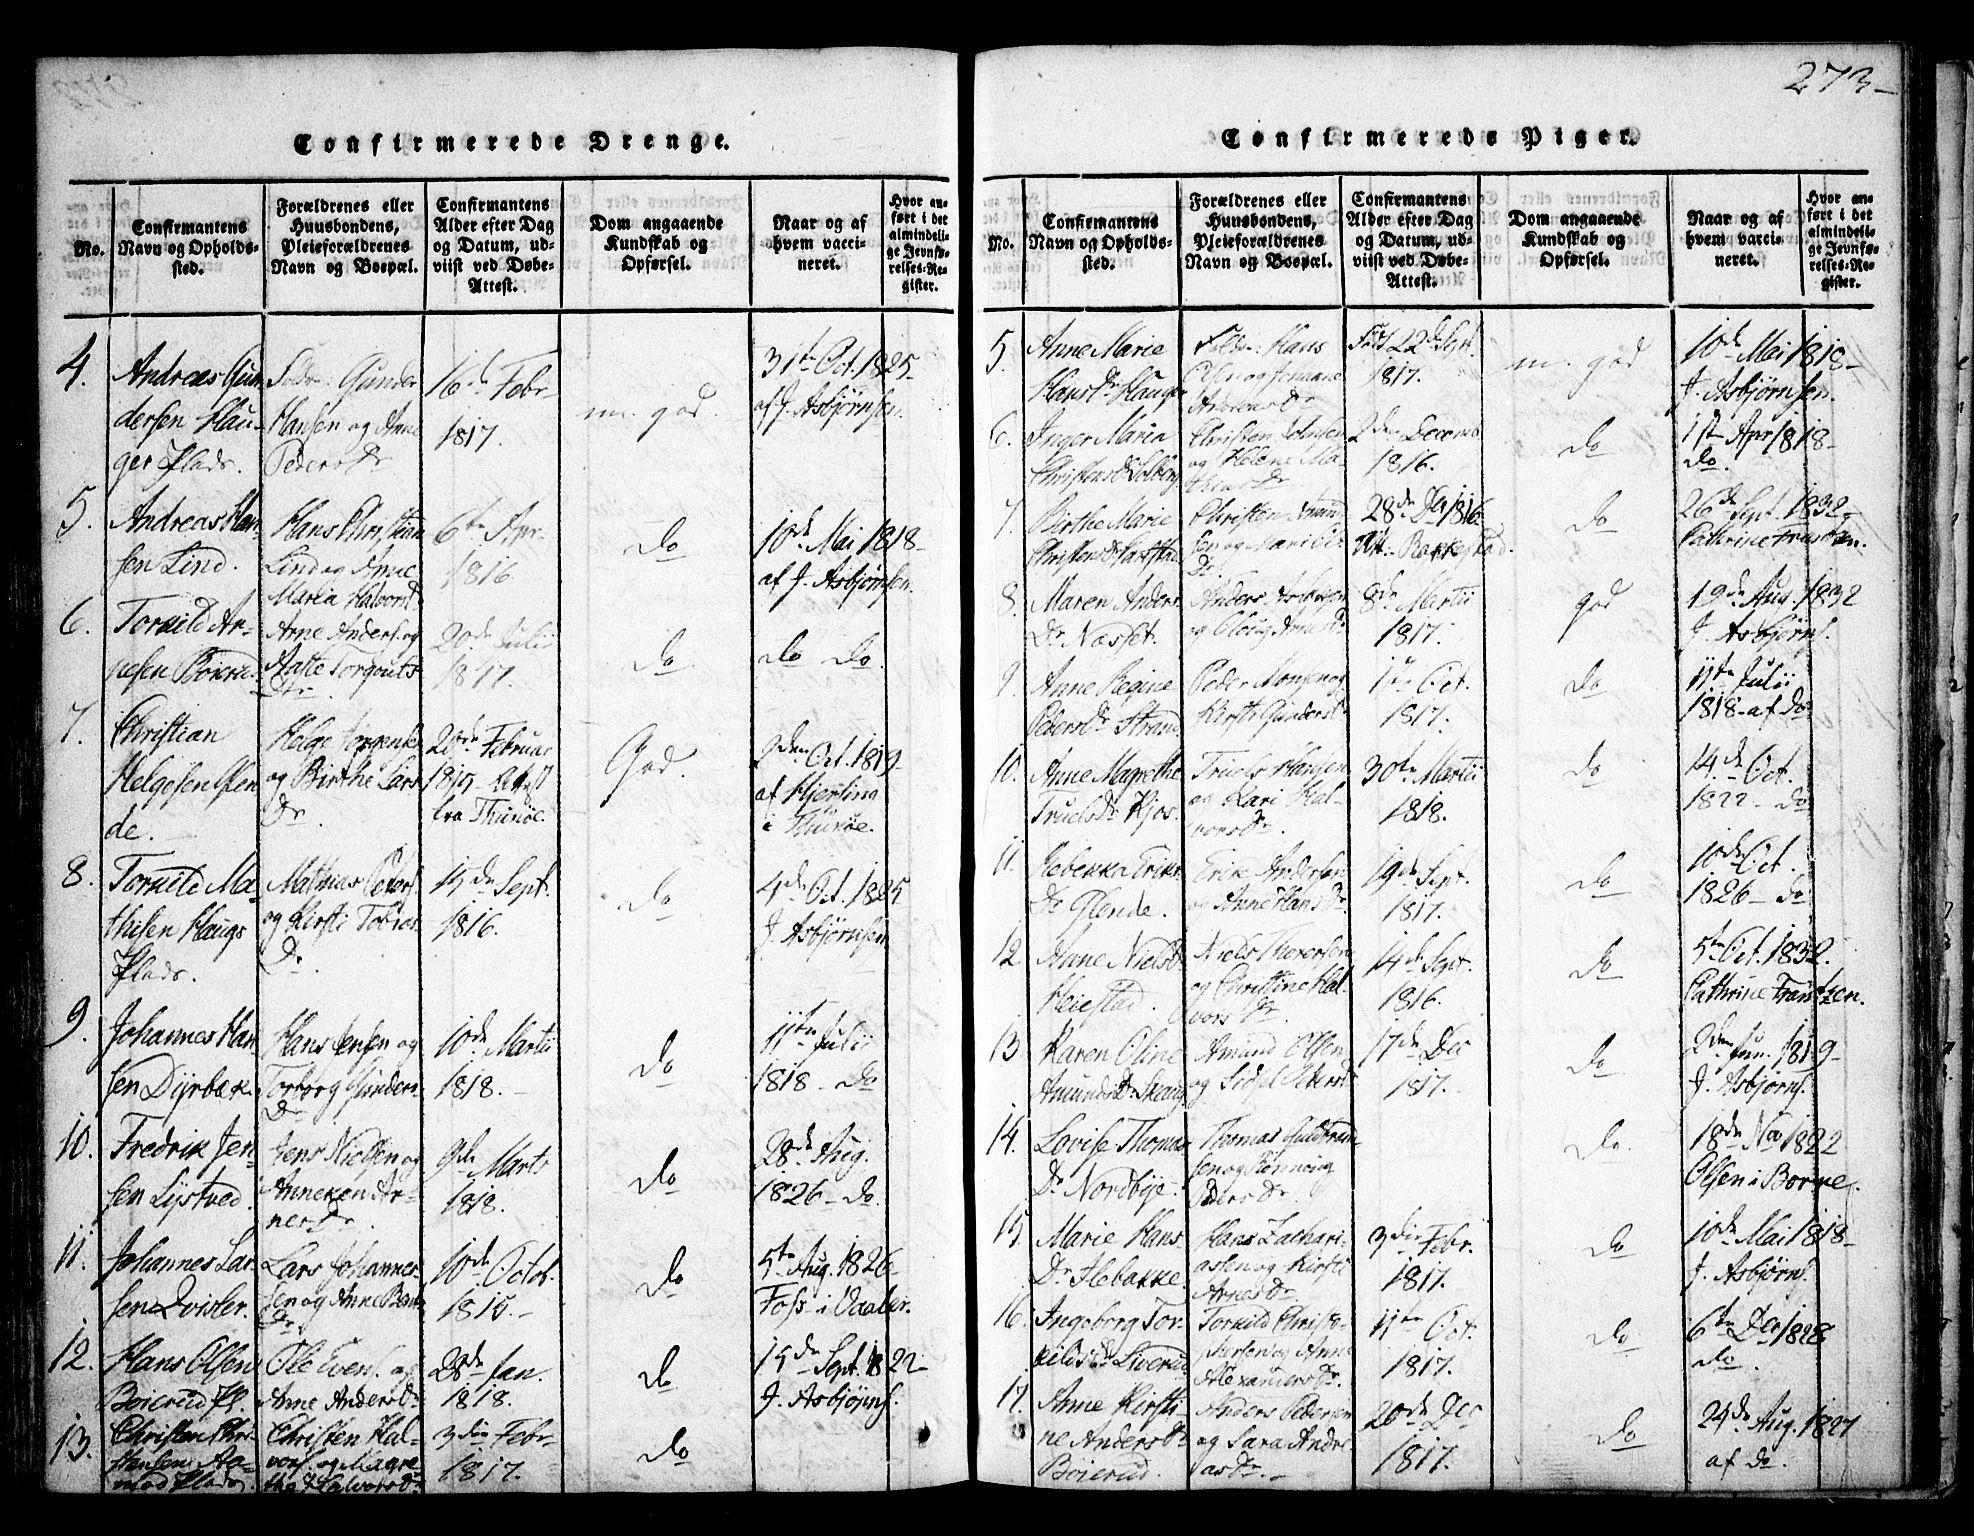 273
Confirmerede Drenge.
No.
Confirmantens Navn og Opholds-sted.
Forældrenes eller Huusbondens, Pleieforældrenes Navn og Boepæl.
Confirmantens Alder efter Dag og Datum, ud-viist ved Døbe-Attest.
Dom angaaende Kundskab og Opførsel.
Naar og af hvem vacci-neret.
Hvor an-ført i det almindeli-ge Jevnfø-relses-Re-gister.
4. Andreas Gun
dersen Hau-
ger Plads.
Gunder
Hansen og Anne
Peders Dr
16de Febr
1817.
m. god.
31te Oct. 1825
af J. Asbjørnsen.
5. Andreas Han
sen Lind.
Hans Christian
Lind og Anne
Maria Halvorsd
6te Apr
1816.
do
10de Mai 1818
af J. Asbjørnsen.
6. Torkild Ar-
nesen
Arne Anders. og
20de Julii
1817.
do
do do.
7. Christian
Helgesen Glen
de.
Helge Jørgensen
og Birthe Lars
Dr
28de Februar
fra Thunøe.
God.
2den Oct. 1819
af Hjerling
i Thunøe.
8. Torkild Ma
thisen Haugs
Plads.
Mathias Peders
og Kirsti Tobias
Dr
15de Sept.
1816.
do
4de Oct. 1825
J. Asbjørnsen
9. Johannes Han
sen Dyrbæk
Hans Jensen og
Torborg Gunders
Dr
10de Martii
1818.
do
11te Julii
1818 do
10. Fredrik Jen-
sen Lystved.
Jens Nielsen og
Anneken Ar-
ners Dr.
9de Marts
1818.
do
28de Aug.
1826 do.
11. Johannes Lar-
sen Qvisler.
Lars Johannes-
sen og Anne
Dr
10de Octob.
1815.
do
5te Aug. 1826
Foss i Vaaler.
12. Hans Olsen
Bøierud Pl.
Ole Evens. og
Anne Anders Dr
28de Jan.
1818.
do
15de Sept. 1822
J. Asbjørns.
13. Christen Chri-
stensen Aa-
mod Plads.
Christen Hal-
vors. og Magre-
the Halvors Dr
3die Febr
1817.
do
Confirmerede Piger.
No.
Confirmantens Navn og Opholds-sted.
Forældrenes eller Huusbondens, Pleieforældrenes Navn og Boepæl.
Confirmantens Alder efter Dag og Datum, ud-viist ved Døbe-Attest.
Dom angaaende Kundskab og Opførsel.
Naar og af hvem vacci-neret.
Hvor an-ført i det almindeli-ge Jevnfø-relses-Re-gister.
5. Anne Marie
Hans Dr Hauger
Hans
Andreas Dr
Født 22de Sept.
1817.
m. god
10de Mai 1818
J. Asbjørnsen.
6. Inger Maria
Christens Dr Solberg
Christen Johnsen
og Helene Ma-
thias Dr
2den Decemb
1816.
do
1ste Apr 1818
do.
7. Birthe Marie
Christens Dr
Christen Amund
sen og Mari
Dr
28de Dec 1816
Att. Rakkestad.
do
26de Sept. 1832
Cathrine Frantzen.
8. Maren Anders
Dr Nasset.
Anders
og
8de Martii
1817.
god
19de Aug. 1832
J. Asbjørns.
9. Anne Regine
Peders Dr Strand
Peder Monsen og
Kirsti Gunders Dr
1ste Oct.
1817.
do
11te Julii
1818 af do
10. Anne Magrethe
Truels Dr Kjos.
Truels Hansen
og Kari Hal-
vors Dr
30te Martii
1818.
do
14de Oct.
1822 do
11. Rebekka Eriks
Dr Glende.
Erik Andersen
og Anne Hans Dr
19de Sept.
1817.
do
10de Oct.
1826 do
12. Anne Niels Dr
Heiestad.
Niels Thorersen
og Christine Hal
vors Dr
14de Sept.
1816.
do
5te Oct. 1832.
Cathrine Frantzen.
13. Karen Oline
Amunds Dr Skaug
Amund Olsen
og Sidsel Peders Dr
17de Dec
1817.
do
2den Jun. 1819
J. Asbjørns.
14. Lovise Thomas
Dr Nordbye.
Thomas Guldbran-
sen og Rønnoug
Peders Dr.
do.
18de Nov 1822
Olsen i Borge.
15. Marie Hans
Dr Flebakke.
Hans Zachari-
asen og Kirsti
Arnes Dr
3die Febr.
1817.
do
10de Mai 1818
J. Asbjørns.
16. Ingeborg Tor-
kilds Dr Liverud
Torkild Christo-
phersen og Anne
Alexanders Dr.
11te Oct.
1817.
do
6te Dec 1828
do.
17. Anne Kirsti-
ne Anders Dr
Bøierud.
Anders Pedersen
og Sara Andre
as Dr.
20de Dec
1817.
do
24de Aug. 1827
af do.